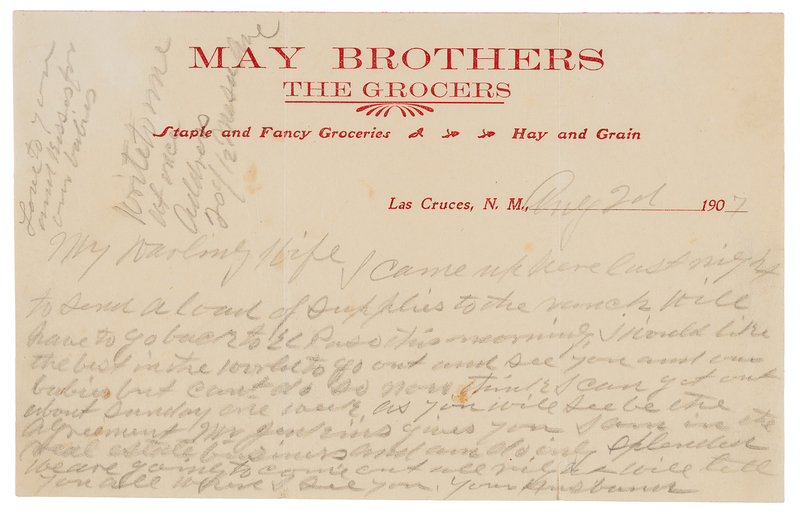 MAY BROTHERS
THE GROCERS
Staple and Fancy Groceries Hay and Grain
Las Cruces, N. M., Aug 2d 1907
My Darling Wife I came up here last night
to send a load of supplies to the ranch Will
have to go back to El Paso this morning, I would like
the best in the world to go out and see you and our
babies but cant do so now think I can get out
about Sunday one week, as you will see be the
agreement Mr Jenkins gives you I am in the
real estate business and am doing splended
We are going to come out all right will tell
you all when I see you. Your Husband
Write to me
at once
Address
209 1/2 Mesa Ave
Love to you
and kisses for
our babies